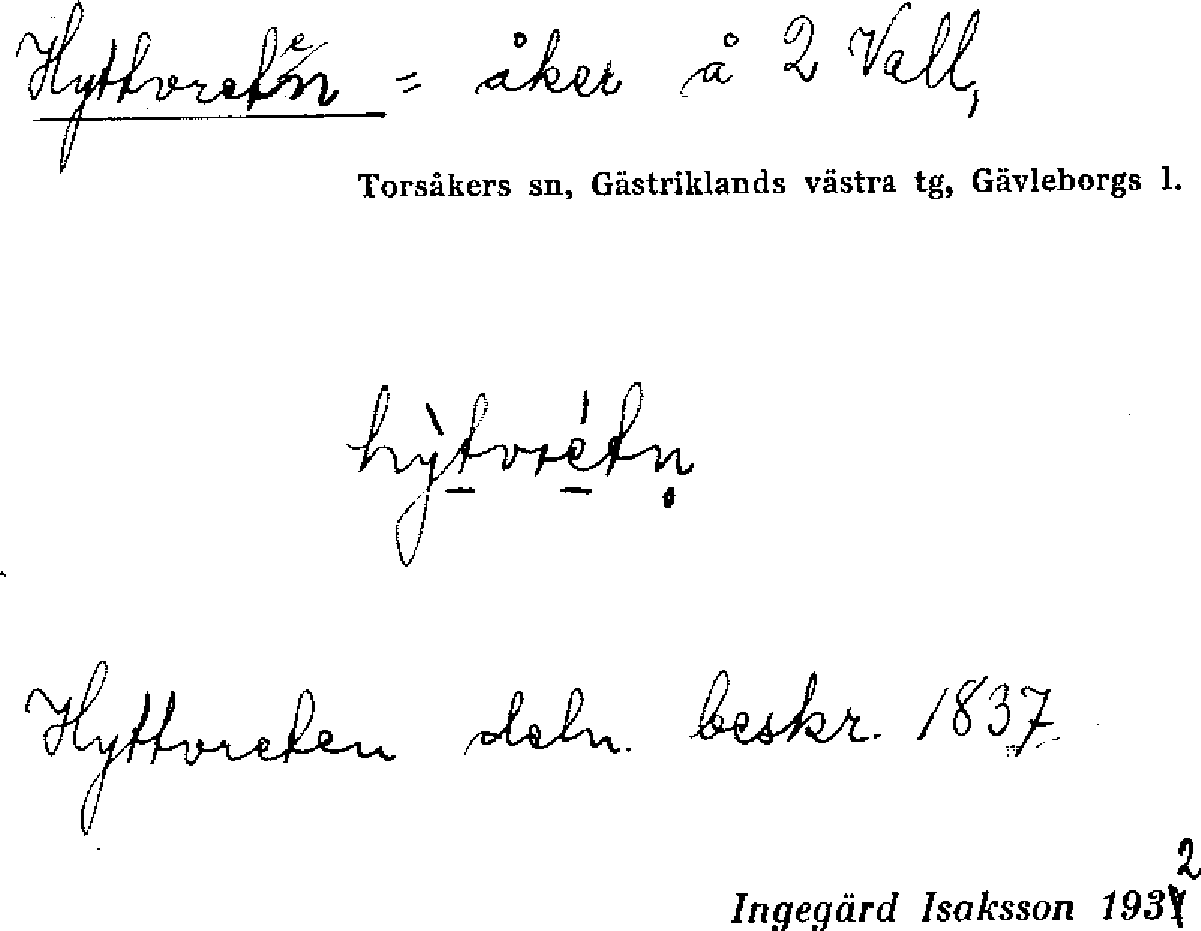 Hyttvreten = åker å 2 Vall,
Torsåkers sn, Gästriklands västra tg, Gävleborgs l.
hỳtvrétn̥
Hyttvreten deln. beskr. 1837
Ingegärd Isaksson 1932